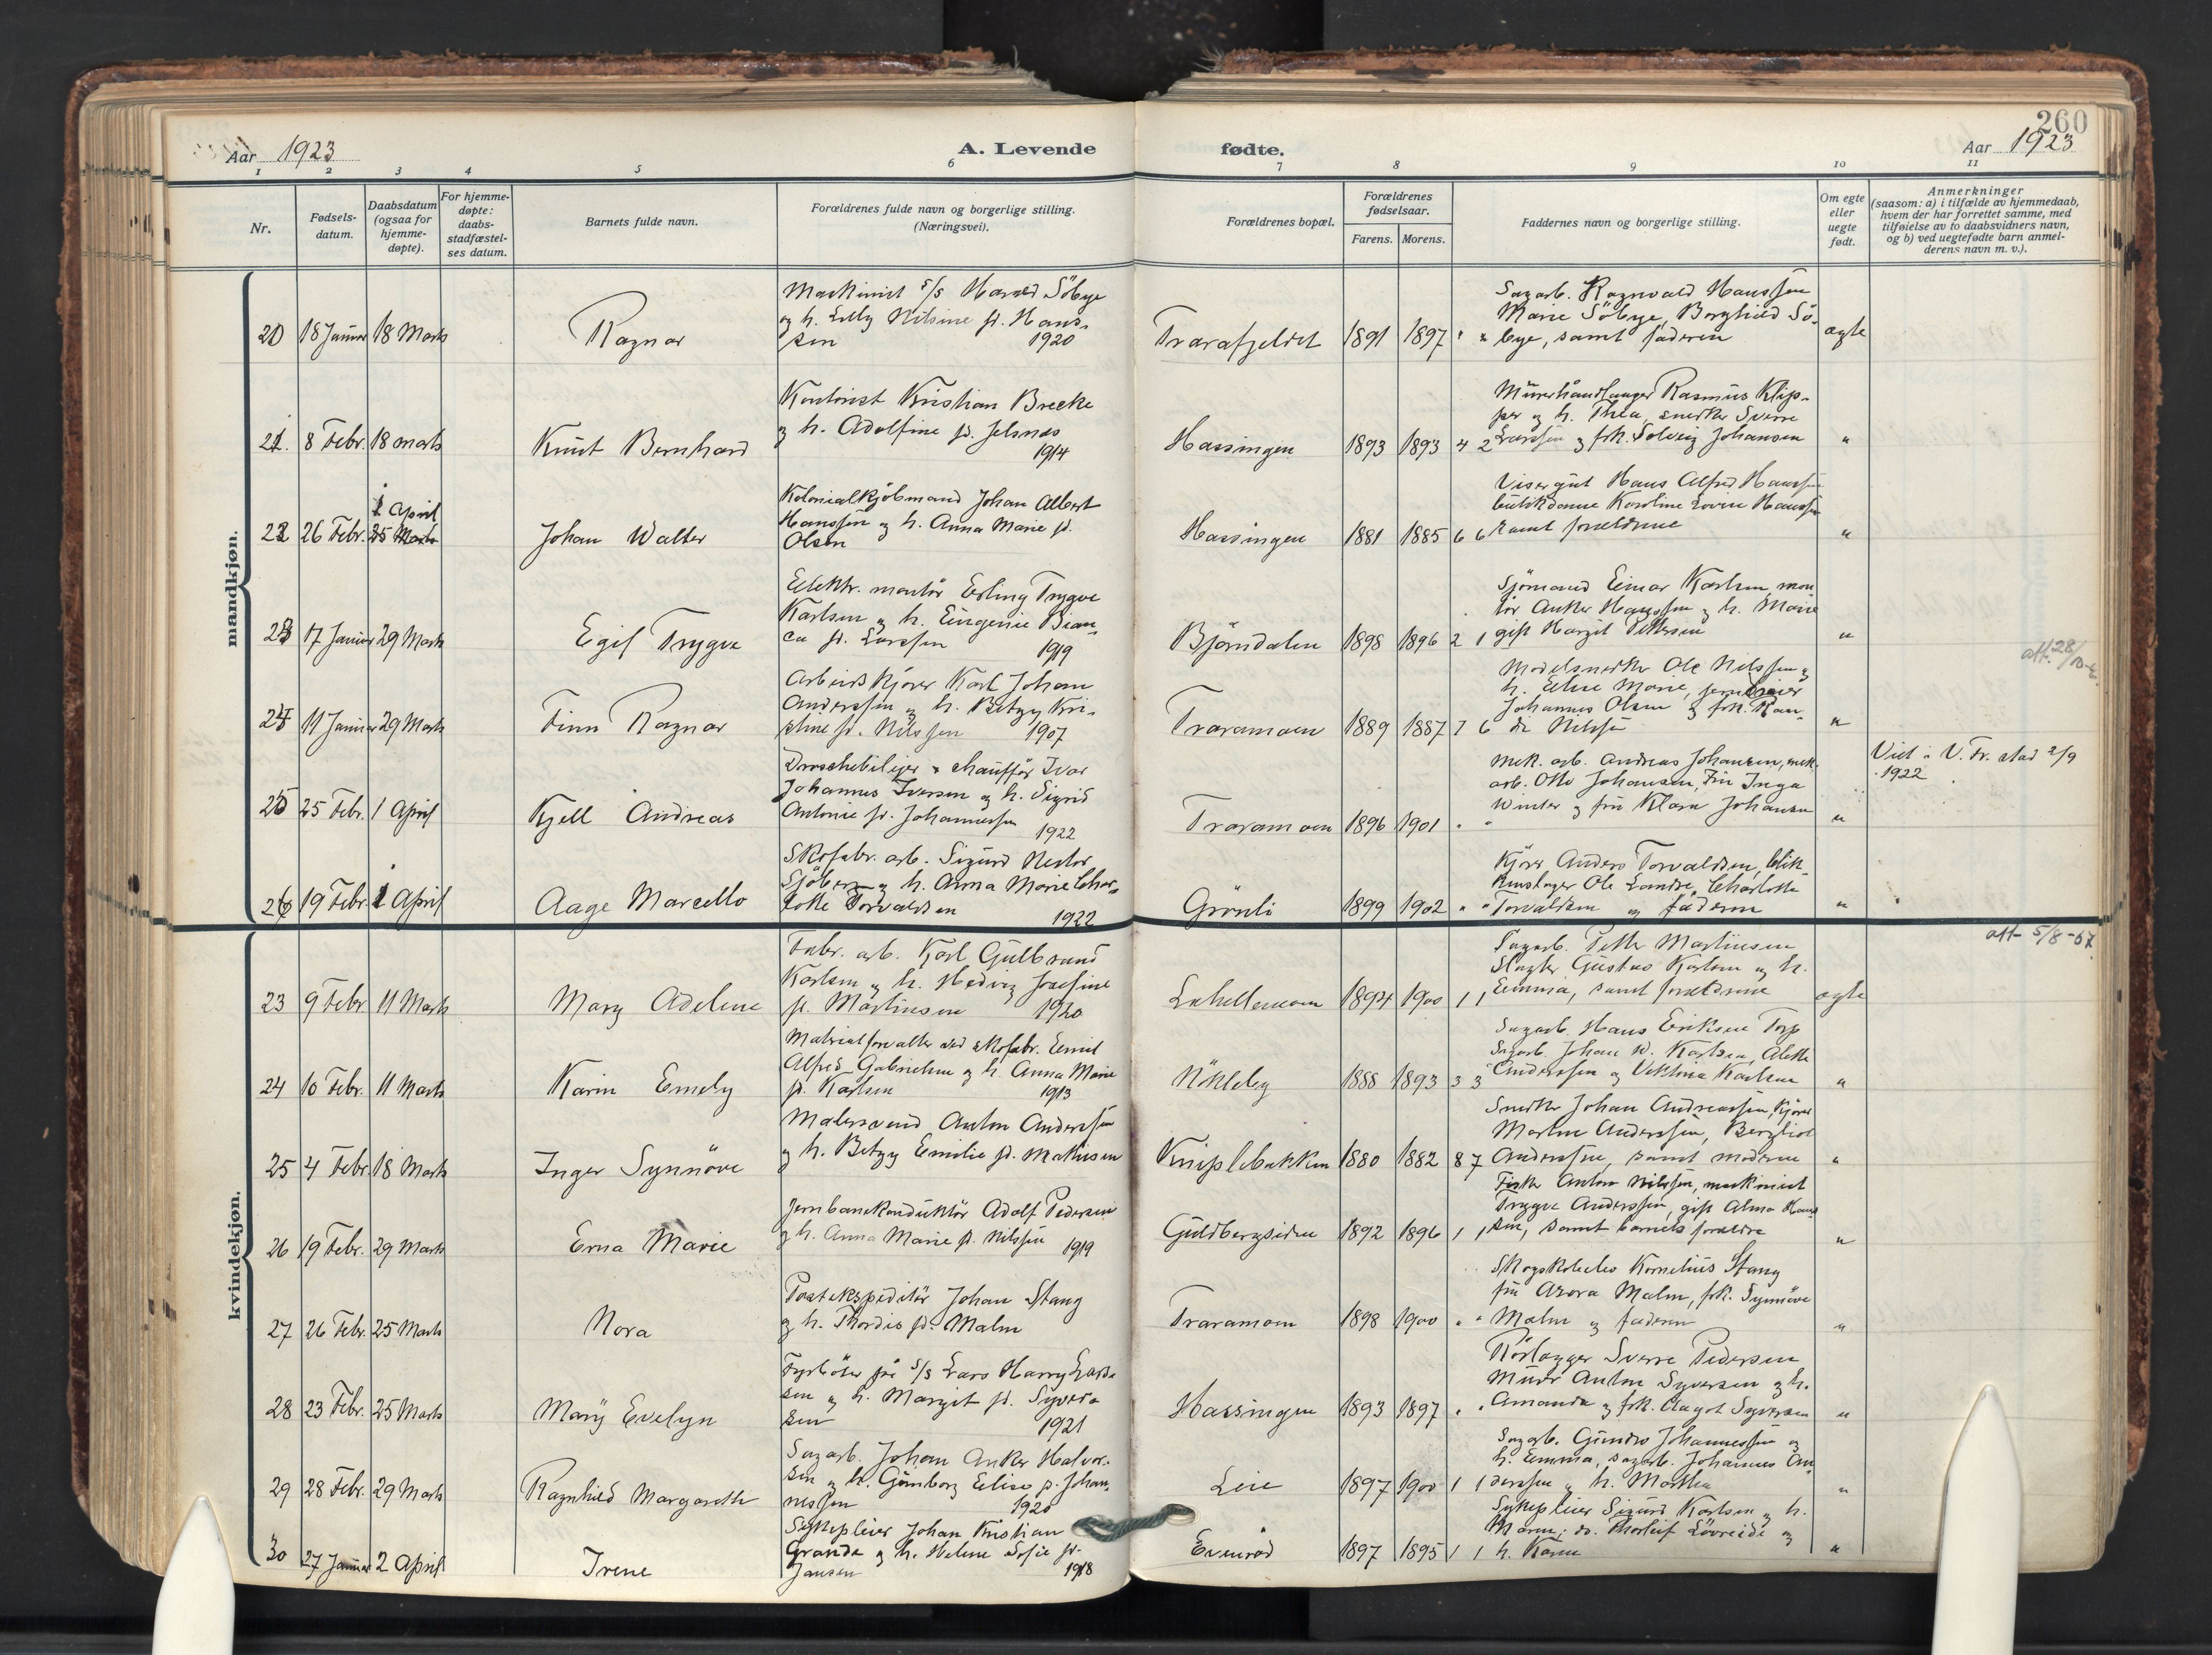 260
Aar 1923
A. Levende
fødte.
Aar 1923
1 2 3 4 5 6 7 8 9 10 11
Nr.
Fødsels-
datum.
Daabsdatum
(ogsaa for
hjemme-
døpte).
For hjemme-
døpte:
daabs-
stadfæstel-
ses datum.
Barnets fulde navn.
Forældrenes fulde navn og borgerlige stilling.
(Næringsvei).
Forældrenes bopæl.
Forældrenes
fødselsaar.
Farens. Morens.
Faddernes navn og borgerlige stilling.
Om egte
eller
uegte
født.
Anmerkninger
(saasom: a) i tilfælde av hjemmedaab,
hvem der har forrettet samme, med
tilføielse av to daabsvidners navn,
og b) ved uegtefødte barn anmel-
derens navn m. v.).
mandkjøn.
20 18 Januar 18 Marts
Ragnar
Maskinist s/s Harald Söbye
og h. Lilly Nilsine f. Hans-
sen 1920
Trarafjeldet 1891 1897 " "
Sagarb. Ragnvald Hanssen
Marie Söbye, Borghild Sö-
bye, samt faderen
ægte
21. 8 Febr. 18 marts
Knut Bernhard
Kontorist Kristian Brecke
og h. Adolfine f. Jelsnes
1914
Hassingen 1893 1893 4 2
Murerhåndlanger Rasmus Klip-
per og h. Thea, snekker Sverre
Larssen og frk. Solveig Johansen
"
22 26 Febr. 25 Marts
1 April
Johan Walter
Kolonialkjöbmand Johan Albert
Hanssen og h. Anna Marie f.
Olsen
Hassingen 1881 1885 6 6
Visergut Hans Alfred Hanssen
butikdame Karoline Lovise Hanssen
samt forældrene
"
23 17 Januar 29 Marts
Egil Trygve
Elektr. montör Erling Trygve
Karlsen og h. Eugenie Bian-
ca f. Larssen 1919
Björndalen 1898 1896 2 1
Sjömand Einar Karlsen, mon-
tör Anker Hanssen og h. Marie
gift Margit Pettersen
"
att. 28/10-
24 11 Januar 29 Marts
Finn Ragnar
Arbeidskjörer Karl Johan
Anderssen og h. Betzy Kri-
stine f. Nilssen 1907
Traramoen 1889 1887 7 6
Modelsnekker Ole Nilssen og
h. Eline Marie, jerndreier
Johannes Olsen og frk. Ran-
di Nilssen
"
25 25 Febr. 1 April
Kjell Andreas
Droschebileier & chaufför Ivar
Johannes Iversen og h. Sigrid
Antonie f. Johannessen
1922
Traramoen 1896 1901 " "
Mek. arb. Andreas Johansen, mek.
arb. Otto Johansen, Fru Inga
Winter og fru Klara Johansen
"
Viet i V. Fr.stad 2/9
1922
26 19 Febr. 1 April
Aage Marcello
Skofabr. arb. Sigurd Nestor
Sjöberg og h. Anna Marie Char-
lotte Torvaldsen 1922
Grönli 1899 1902 " "
Kjörer Anders Torvaldsen, blik-
kenslager Ole Landre, Charlotte
Torvaldsen og faderen
"
kvindekjøn.
23 9 Febr 11 Marts
Mary Adelene
Fabr. arb. Karl Gulbrand
Karlsen og h. Hedvig Josefine
f. Martinsen 1920
Lahellemoen 1894 1900 1 1
Sagarb. Petter Martinsen
Slagter Gustav Karlsen og h.
Emma, samt forældrene
ægte
att 5/8-57
24 10 Febr. 11 Marts
Karin Emely
Materialforvalter ved skofabr. Emil
Alfred Gabrielsen og h. Anna Marie
f. Karlsen 1913
Nökleby 1888 1893 3 3
Sagarb. Hans Eriksen Torp
Sagarb. Johan W. Karlsen, Alette
Anderssen og Viktoria Karlsen
"
25 4 Febr. 18 Marts
Inger Synnöve
Malersvend Anton Anderssen
og h. Betzy Emilie f. Mathisen
Kniplebakken 1880 1882 8 7
Snekker Johan Andreassen, Kjörer
Martin Anderssen, Bergliot
Anderssen, samt moderen
"
26 19 Febr. 29 Marts
Erna Marie
Jernbanekonduktör Adolf Pedersen
og h. Anna Marie f. Nilssen 1919
Guldbergsiden 1892 1896 1 1
Fisker Anton Nilssen, maskinist
Trygve Anderssen, gift Alma Hans-
sen, samt barnets forældre
"
27 26 Febr. 25 Marts
Nora
Postekspeditör Johan Stang
og h. Thordis f. Malm
Traramoen 1898 1900 " "
Skogskoleelev Kornelius Stang
fru Arora Malm, frk. Synnöve
Malm og faderen
"
28 23 Febr. 25 Marts
Mary Evelyn
Fyrböter på s/s Lars Harry Lars-
sen og h. Margit f. Syver-
sen 1921
Hassingen 1893 1897 " "
Rörlægger Sverre Pedersen
Murer Anton Syversen og h.
Amanda og frk. Aagot Syversen
"
29 28 Febr. 29 Marts
Ragnhild Margarethe
Sagarb. Johan Anker Halvor-
sen og h. Gunborg Elise f. Johan-
nessen 1920
Leie 1897 1900 1 1
Sagarb. Gunder Johannessen og
h. Emma, sagarb. Johannes An-
derssen og h. Marthea
"
30 27 Januar 2 April
Irene
Sykepleier Johan Kristian
Grande og h. Helene Sofie f.
Jansen 1918
Evenröd 1897 1895 1 1
Sykepleier Sigurd Karlsen og h.
Maren; do. Thorleif Lövreide og
h. Karen
"